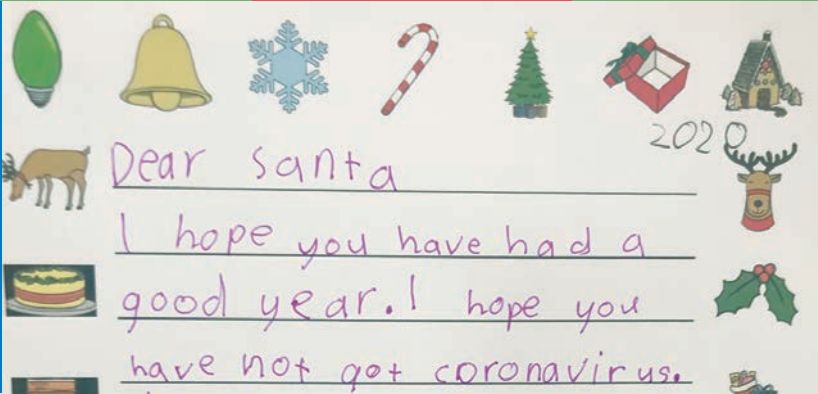 2020
Dear Santa
I hope you have had a
good year. I hope you
have not got coronavirus.